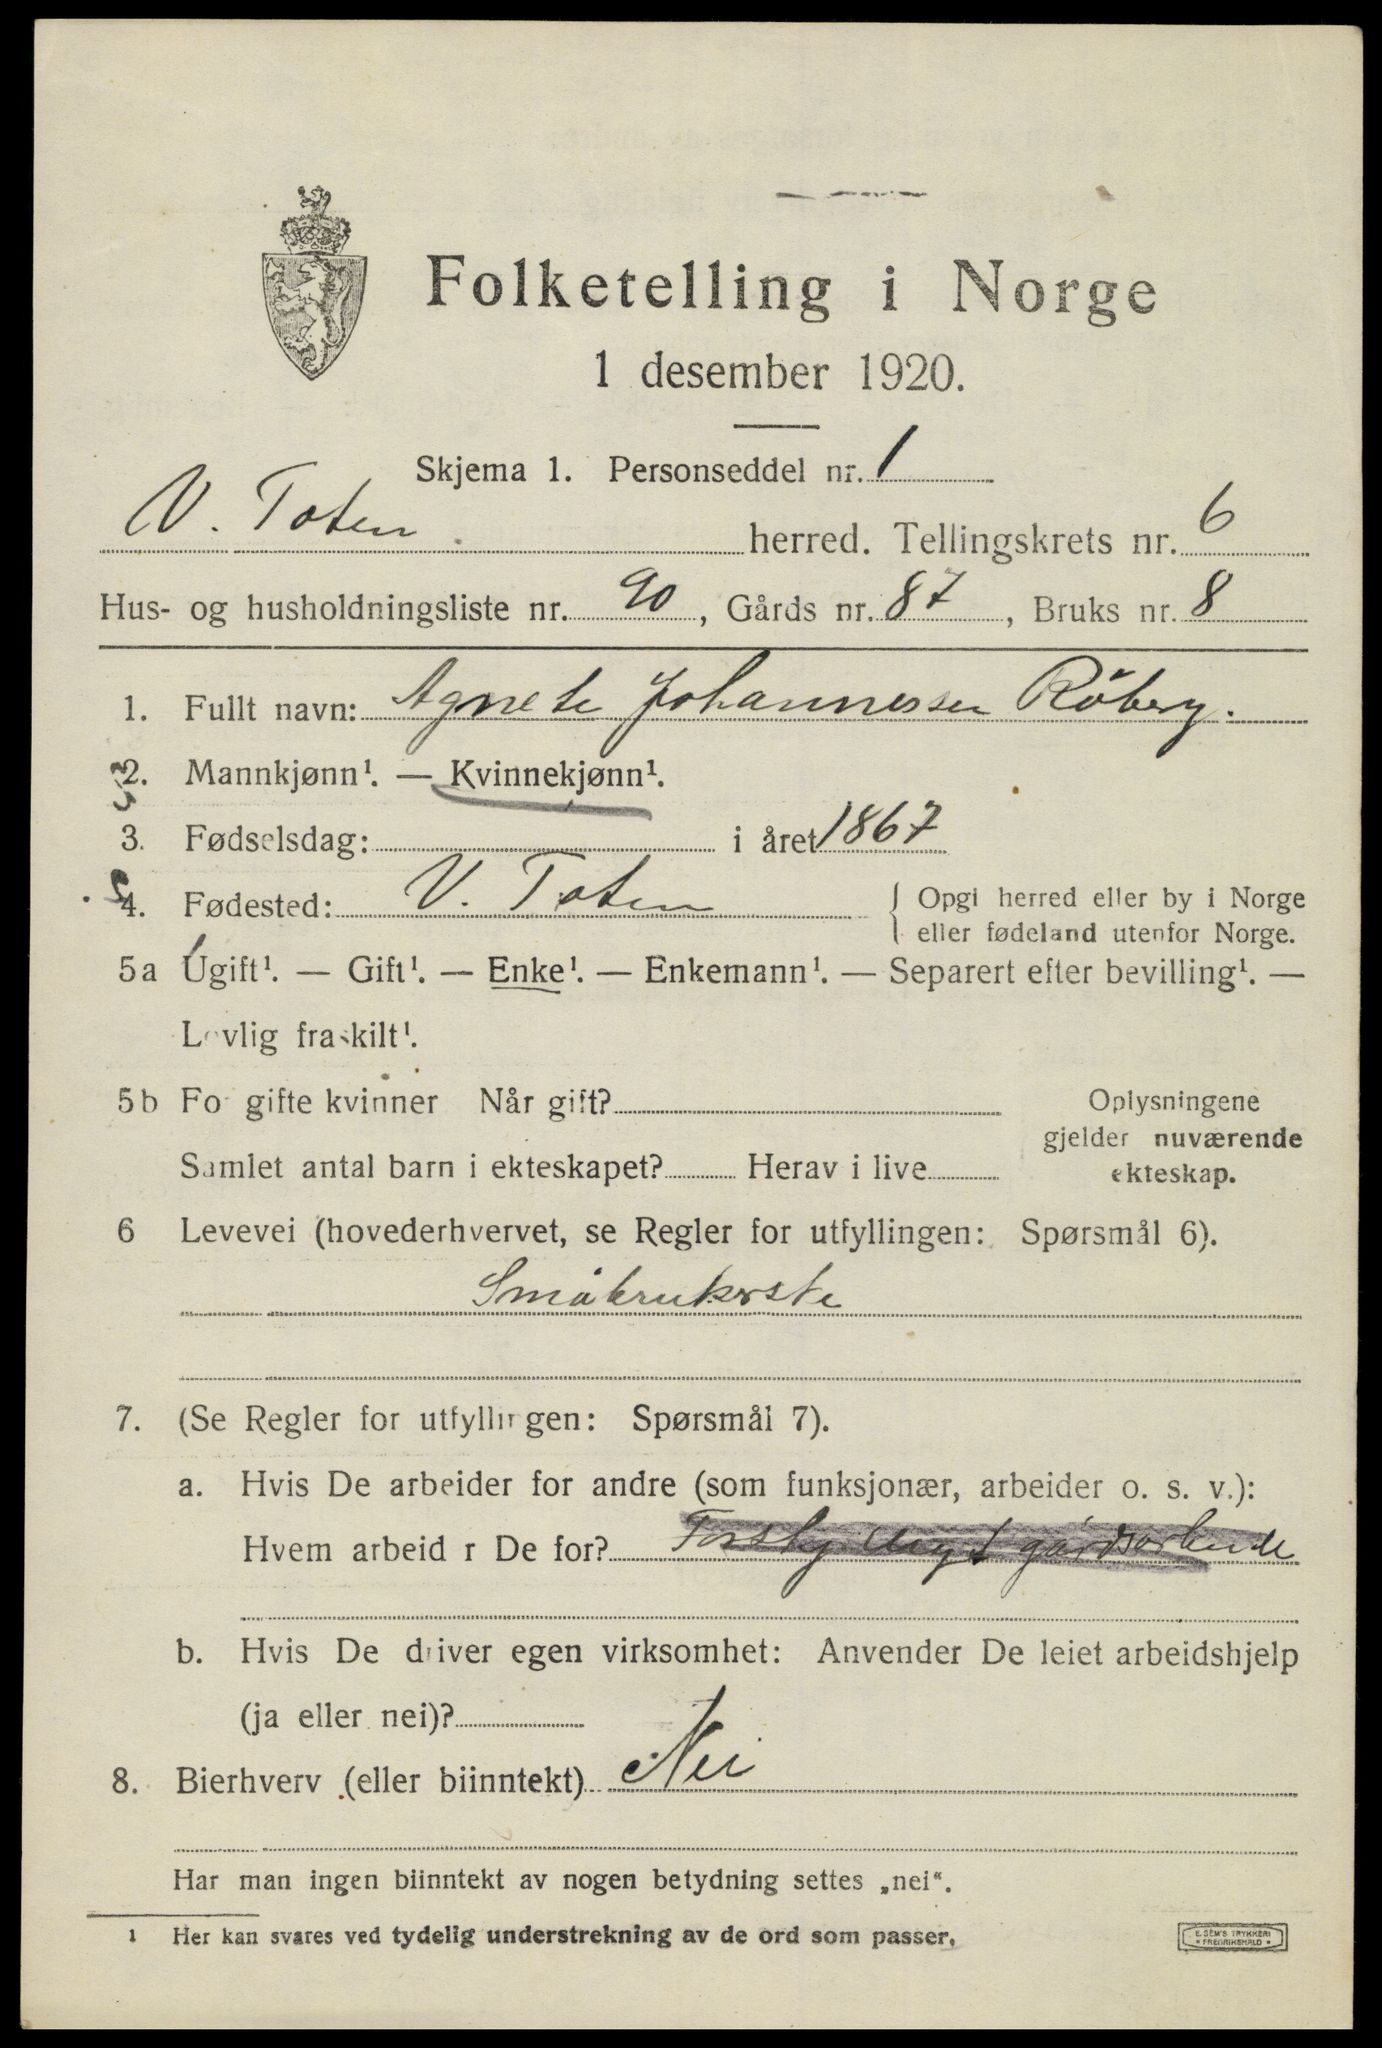 Folketelling i Norge
1 desember 1920.
Skjema 1. Personseddel nr. 1
V. Toten herred. Tellingskrets nr. 6
Hus- og husholdningsliste nr. 90, Gårds nr. 87, Bruks nr. 8
1. Fullt navn: Agnete Johannessen Röberg.
2. Mannkjønn¹. — Kvinnekjønn¹.
3. Fødselsdag: i året 1867
4. Fødested: V. Toten { Opgi herred eller by i Norge
eller fødeland utenfor Norge.
5a Ugift¹. — Gift¹. — Enke¹. — Enkemann¹. — Separert efter bevilling¹. —
Lovlig fraskilt¹.
5b For gifte kvinner Når gift? Oplysningene
gjelder nuværende
Samlet antal barn i ekteskapet? Herav i live
ekteskap.
6 Levevei (hovederhvervet, se Regler for utfyllingen: Spørsmål 6).
Småbrukerske
7. (Se Regler for utfyllingen: Spørsmål 7).
a. Hvis De arbeider for andre (som funksjonær, arbeider o. s. v.):
Hvem arbeid r De for? gårdsarbeide
b. Hvis De driver egen virksomhet: Anvender De leiet arbeidshjelp
(ja eller nei)?
8. Bierhverv (eller biinntekt) Nei
Har man ingen biinntekt av nogen betydning settes „nei“.
1 Her kan svares ved tydelig understrekning av de ord som passer.
E. SEM'S TRYKKERI
FREDRIKSHALD